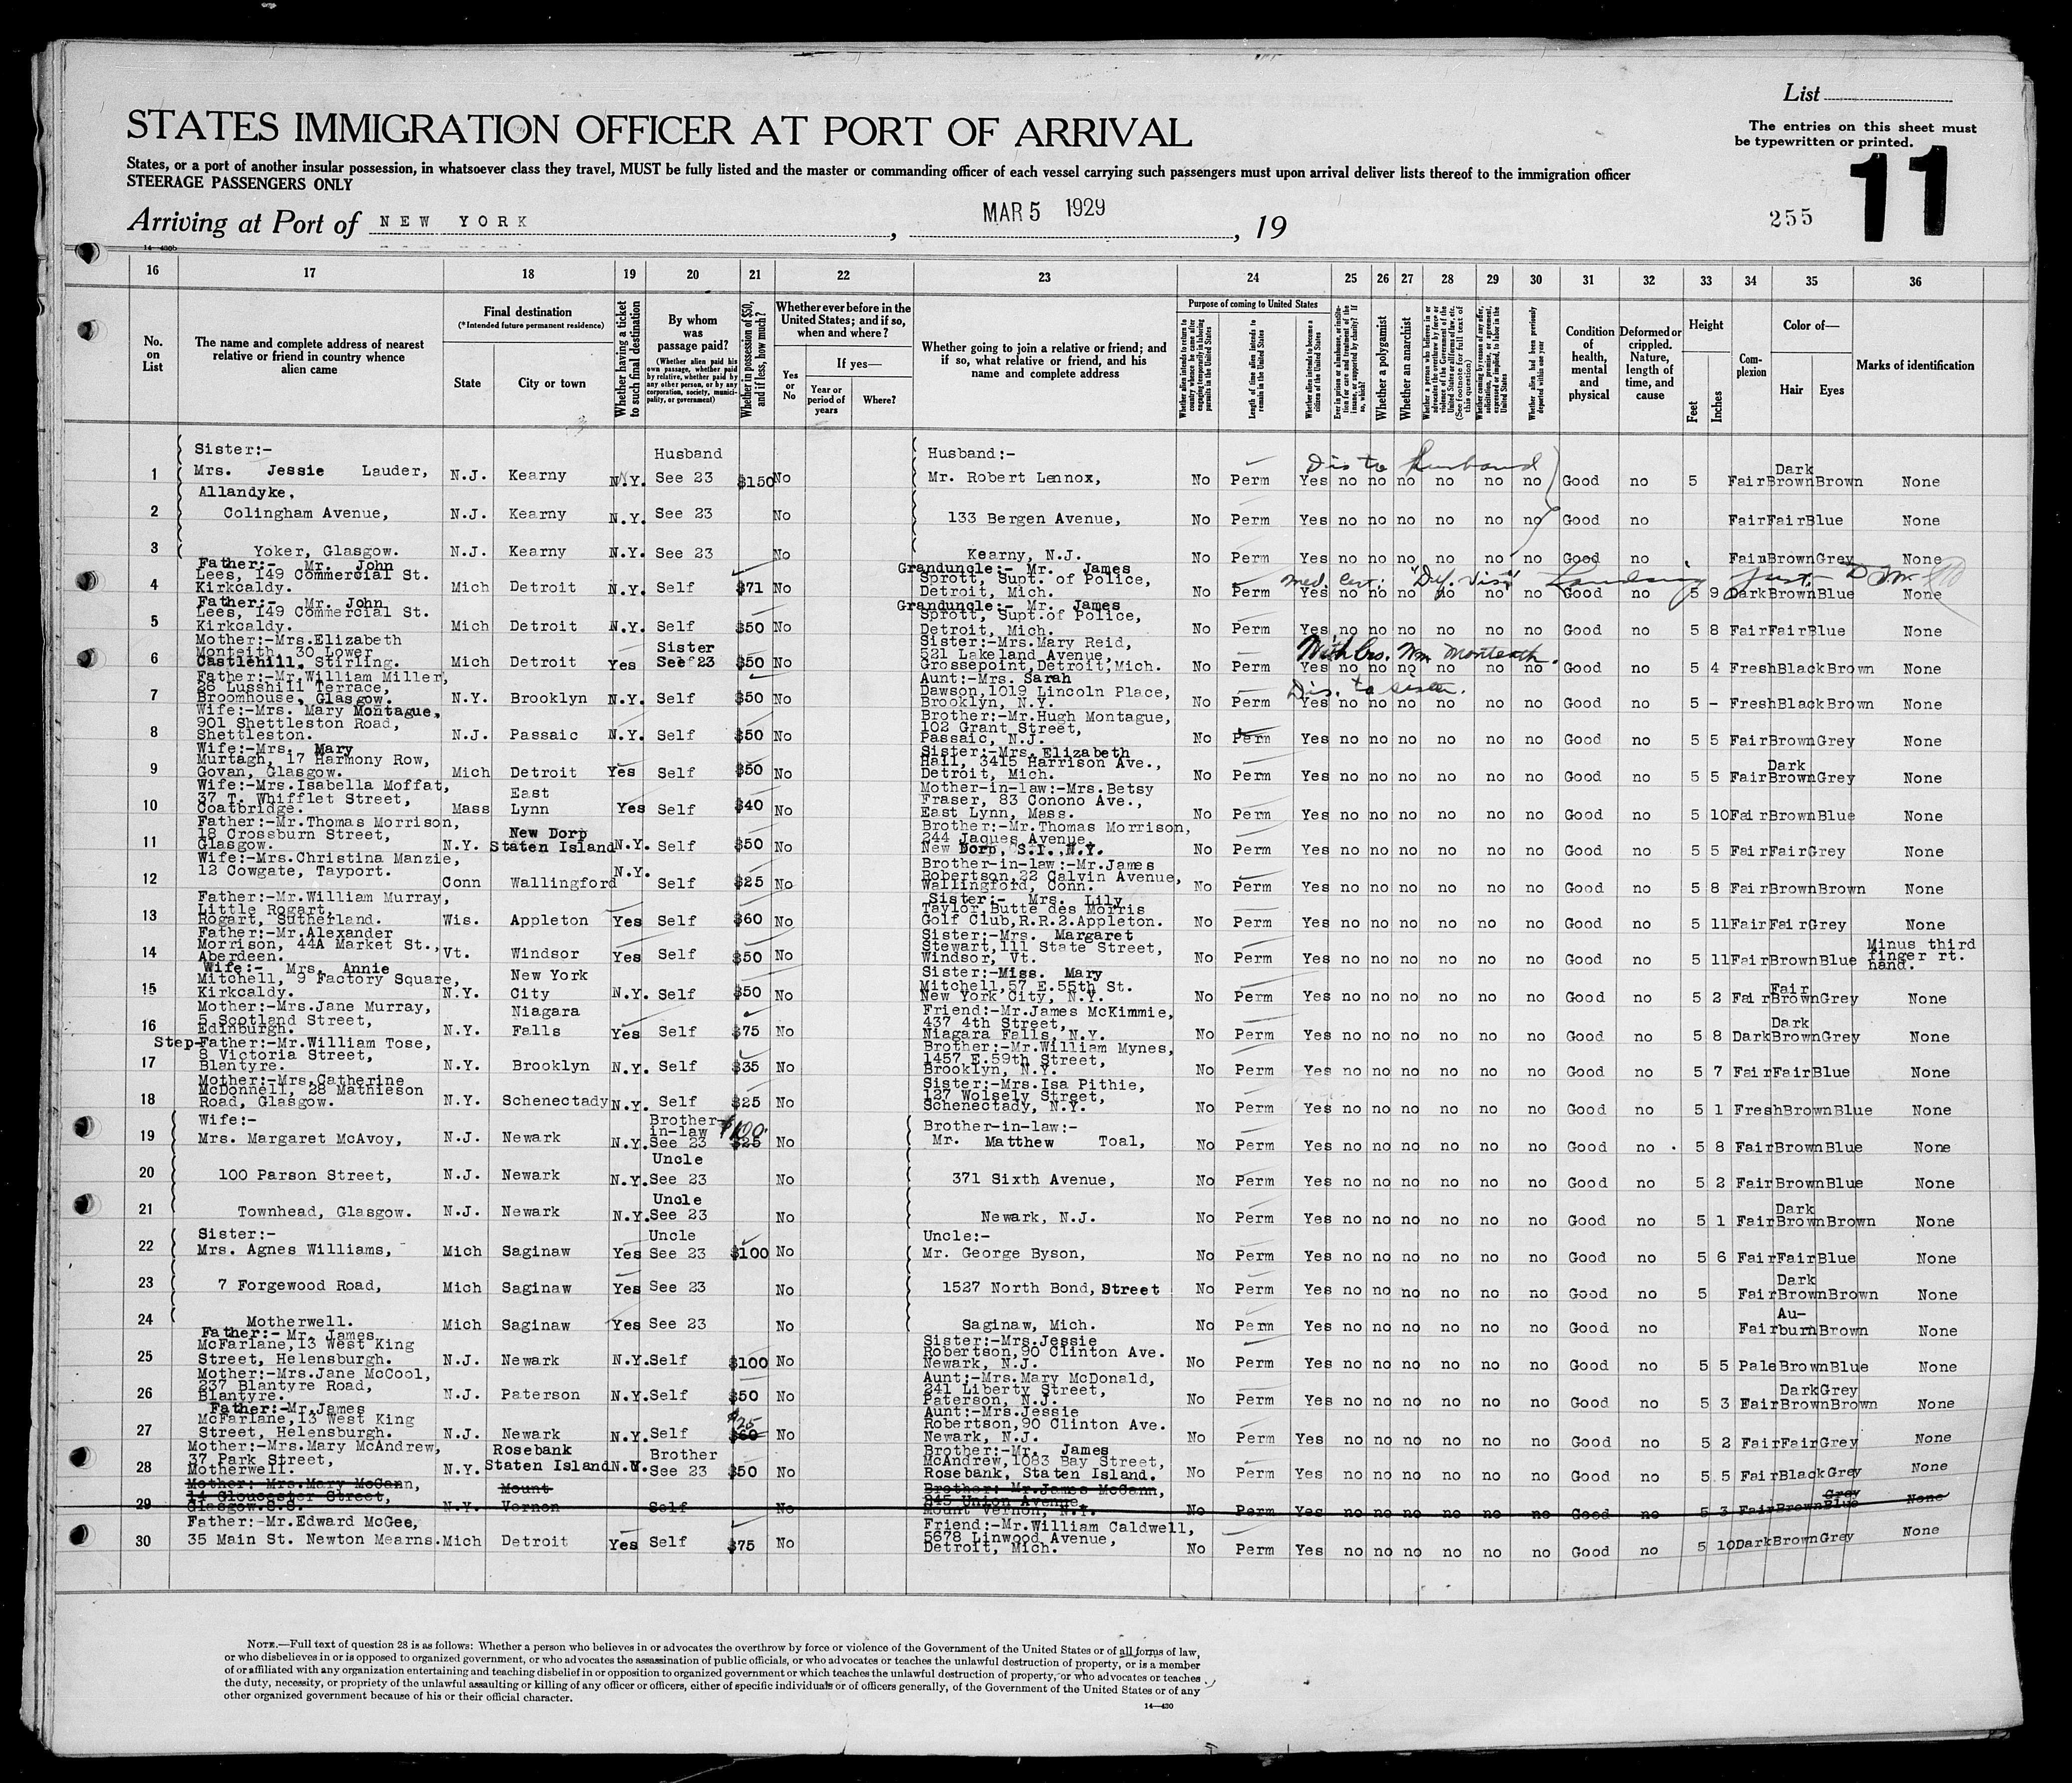 List
STATES IMMIGRATION OFFICER AT PORT OF ARRIVAL
The entries on this sheet must
be typewritten or printed.
States, or a port of another insular possession, in whatsoever class they travel, MUST be fully listed and the master or commanding officer of each vessel carrying such passengers must upon arrival deliver lists thereof to the immigration officer
STEERAGE PASSENGERS ONLY
11
Arriving at Port of NEW YORK, MAR 5 1929, 19
255
14-430b
16 17 18 19 20 21 22 23 24 25 26 27 28 29 30 31 32 33 34 35 36
No. on List
The name and complete address of nearest relative or friend in country whence alien came
Final destination
(*Intended future permanent residence)
State
City or town
Whether having a ticket to such final destination
By whom was passage paid?
(Whether alien paid his own passage, whether paid by relative, whether paid by any other person, or by any corporation, society, municipality, or government)
Whether in possession of $50, and if less, how much?
Whether ever before in the United States; and if so, when and where?
Yes or No
If yes—
Year or period of years
Where?
Whether going to join a relative or friend; and if so, what relative or friend, and his name and complete address
Purpose of coming to United States
Whether alien intends to return to country whence he came after engaging temporarily in laboring pursuits in the United States
Length of time alien intends to remain in the United States
Whether alien intends to become a citizen of the United States
Ever in prison or almshouse, or institution for care and treatment of the insane, or supported by charity? If so, which?
Whether a polygamist
Whether an anarchist
Whether a person who believes in or advocates the overthrow by force or violence of the Government of the United States or all forms of law, etc. (See footnote for full text of this question)
Whether coming by reason of any offer, solicitation, promise, or agreement, expressed or implied, to labor in the United States
Whether alien had been previously deported within one year
Condition of health, mental and physical
Deformed or crippled. Nature, length of time, and cause
Height
Feet
Inches
Complexion
Color of—
Hair
Eyes
Marks of identification
1 Sister:- Mrs. Jessie Lauder, N.J. Kearny N.Y. Husband See 23 $150 No Husband:- Mr. Robert Lennox, No Perm Yes no no no no no no Good no 5 Fair Dark Brown Brown None
Dis to husband
Allandyke,
2 Colingham Avenue, N.J. Kearny N.Y. See 23 No 133 Bergen Avenue, No Perm Yes no no no no no no Good no Fair Fair Blue None
3 Yoker, Glasgow. N.J. Kearny N.Y. See 23 No Kearny, N.J. No Perm Yes no no no no no no Good no Fair Brown Grey None
4 Father:- Mr. John Lees, 149 Commercial St. Kirkcaldy. Mich Detroit N.Y. Self $71 No Granduncle:- Mr. James Sprott, Supt. of Police, Detroit, Mich. No Perm Yes no no no no no no Good no 5 9 Dark Brown Blue None
Med. Cert: "Def. Visi"
5 Father:- Mr. John Lees, 149 Commercial St. Kirkcaldy. Mich Detroit N.Y. Self $50 No Granduncle:- Mr. James Sprott, Supt.of Police, Detroit, Mich. No Perm Yes no no no no no no Good no 5 8 Fair Fair Blue None
6 Mother:-Mrs.Elizabeth Monteith, 30 Lower Castlehill, Stirling. Mich Detroit Yes Sister See 23 $50 No Sister:-Mrs.Mary Reid, 521 Lakeland Avenue, Grossepoint,Detroit,Mich. No Perm Yes no no no no no no Good no 5 4 Fresh Black Brown None
Wm Monteath.
7 Father:-Mr.William Miller, 26 Lusshill Terrace, Broomhouse, Glasgow. N.Y. Brooklyn N.Y. Self $50 No Aunt:-Mrs. Sarah Dawson,1019 Lincoln Place, Brooklyn, N.Y. No Perm Yes no no no no no no Good no 5 - Fresh Black Brown None
Dis. to sister.
8 Wife:-Mrs. Mary Montague, 901 Shettleston Road, Shettleston. N.J. Passaic N.Y. Self $50 No Brother:-Mr.Hugh Montague, 102 Grant Street, Passaic, N.J. No Perm Yes no no no no no no Good no 5 5 Fair Brown Grey None
9 Wife:-Mrs. Mary Murtagh, 17 Harmony Row, Govan, Glasgow. Mich Detroit Yes Self $50 No Sister:-Mrs.Elizabeth Hall, 3415 Harrison Ave., Detroit, Mich. No Perm Yes no no no no no no Good no 5 5 Fair Dark Brown Grey None
10 Wife:-Mrs.Isabella Moffat, 37 T. Whifflet Street, Coatbridge. Mass East Lynn Yes Self $40 No Mother-in-law:-Mrs.Betsy Fraser, 83 Conono Ave., East Lynn, Mass. No Perm Yes no no no no no no Good no 5 10 Fair Brown Blue None
11 Father:-Mr.Thomas Morrison, 18 Crossburn Street, Glasgow. N.Y. New Dorp Staten Island N.Y. Self $50 No Brother:-Mr.Thomas Morrison, 244 Jaques Avenue, New Dorp, S.I.,N.Y. No Perm Yes no no no no no no Good no 5 5 Fair Fair Grey None
12 Wife:-Mrs.Christina Manzie, 12 Cowgate, Tayport. Conn Wallingford N.Y. Self $25 No Brother-in-law:-Mr.James Robertson,22 Calvin Avenue, Wallingford, Conn. No Perm Yes no no no no no no Good no 5 8 Fair Brown Brown None
13 Father:-Mr.William Murray, Little Rogart, Rogart, Sutherland. Wis. Appleton Yes Self $60 No Sister:- Mrs. Lily Taylor,Butte des Morris Golf Club,R.R.2.Appleton. No Perm Yes no no no no no no Good no 5 11 Fair Fair Grey None
14 Father:-Mr.Alexander Morrison, 44A Market St., Aberdeen. Vt. Windsor Yes Self $50 No Sister:-Mrs. Margaret Stewart,111 State Street, Windsor, Vt. No Perm Yes no no no no no no Good no 5 11 Fair Brown Blue Minus third finger rt. hand.
15 Wife:- Mrs. Annie Mitchell, 9 Factory Square, Kirkcaldy. N.Y. New York City N.Y. Self $50 No Sister:-Miss. Mary Mitchell,57 E.55th St. New York City, N.Y. No Perm Yes no no no no no no Good no 5 2 Fair Fair Brown Grey None
16 Mother:-Mrs.Jane Murray, 5 Scotland Street, Edinburgh. N.Y. Niagara Falls Yes Self $75 No Friend:-Mr.James McKimmie, 437 4th Street, Niagara Falls, N.Y. No Perm Yes no no no no no no Good no 5 8 Dark Dark Brown Grey None
17 Step-Father:-Mr.William Tose, 8 Victoria Street, Blantyre. N.Y. Brooklyn N.Y. Self $35 No Brother:-Mr.William Mynes, 1457 E.59th Street, Brooklyn, N.Y. No Perm Yes no no no no no no Good no 5 7 Fair Fair Blue None
18 Mother:-Mrs.Catherine McDonnell, 28 Mathieson Road, Glasgow. N.Y. Schenectady N.Y. Self $25 No Sister:-Mrs.Isa Pithie, 127 Wolsely Street, Schenectady, N.Y. No Perm Yes no no no no no no Good no 5 1 Fresh Brown Blue None
19 Wife:- Mrs. Margaret McAvoy, N.J. Newark N.Y. Brother-in-law See 23 $100 $25 No Brother-in-law:- Mr. Matthew Toal, No Perm Yes no no no no no no Good no 5 8 Fair Brown Blue None
20 100 Parson Street, N.J. Newark N.Y. Uncle See 23 No 371 Sixth Avenue, No Perm Yes no no no no no no Good no 5 2 Fair Brown Blue None
21 Townhead, Glasgow. N.J. Newark N.Y. Uncle See 23 No Newark, N.J. No Perm Yes no no no no no no Good no 5 1 Fair Dark Brown Brown None
22 Sister:- Mrs. Agnes Williams, Mich Saginaw Yes Uncle See 23 $100 No Uncle:- Mr. George Byson, No Perm Yes no no no no no no Good no 5 6 Fair Fair Blue None
23 7 Forgewood Road, Mich Saginaw Yes See 23 No 1527 North Bond, Street No Perm Yes no no no no no no Good no 5 Fair Dark Brown Brown None
24 Motherwell. Mich Saginaw Yes See 23 No Saginaw, Mich. No Perm Yes no no no no no no Good no Fair Au-burn Brown None
25 Father:- Mr. James McFarlane,13 West King Street, Helensburgh. N.J. Newark N.Y. Self $100 No Sister:-Mrs.Jessie Robertson,90 Clinton Ave. Newark, N.J. No Perm Yes no no no no no no Good no 5 5 Pale Brown Blue None
26 Mother:-Mrs.Jane McCool, 237 Blantyre Road, Blantyre. N.J. Paterson N.Y. Self $50 No Aunt:-Mrs.Mary McDonald, 241 Liberty Street, Paterson, N.J. No Perm Yes no no no no no no Good no 5 3 Fair Dark Grey Brown Brown None
27 Father:-Mr.James McFarlane,13 West King Street, Helensburgh. N.J. Newark N.Y. Self $25 $60 No Aunt:-Mrs.Jessie Robertson,90 Clinton Ave. Newark, N.J. No Perm Yes no no no no no no Good no 5 2 Fair Fair Grey None
28 Mother:-Mrs.Mary McAndrew, 37 Park Street, Motherwell. N.Y. Rosebank Staten Island N.Y. Brother See 23 $50 No Brother:-Mr. James McAndrew,1083 Bay Street, Rosebank, Staten Island. No Perm Yes no no no no no no Good no 5 5 Fair Black Grey None
29 Mother: Mrs.Mary McGann, 14 Gloucester Street, Glasgow.S.S. N.Y. Mount Vernon Self No Brother: Mr.James McGann, 845 Union Avenue, Mount Vernon, N.Y. No Perm Yes no no no no no no Good no 5 3 Fair Brown Grey Blue None
30 Father:-Mr.Edward McGee, 35 Main St. Newton Mearns. Mich Detroit Yes Self $75 No Friend:-Mr.William Caldwell, 5678 Linwood Avenue, Detroit, Mich. No Perm Yes no no no no no no Good no 5 10 Dark Brown Grey None
NOTE.—Full text of question 28 is as follows: Whether a person who believes in or advocates the overthrow by force or violence of the Government of the United States or of all forms of law,
or who disbelieves in or is opposed to organized government, or who advocates the assassination of public officials, or who advocates or teaches the unlawful destruction of property, or is a member
of or affiliated with any organization entertaining and teaching disbelief in or opposition to organized government or which teaches the unlawful destruction of property, or who advocates or teaches
the duty, necessity, or propriety of the unlawful assaulting or killing of any officer or officers, either of specific individuals or of officers generally, of the Government of the United States or of any
other organized government because of his or their official character.
14-430